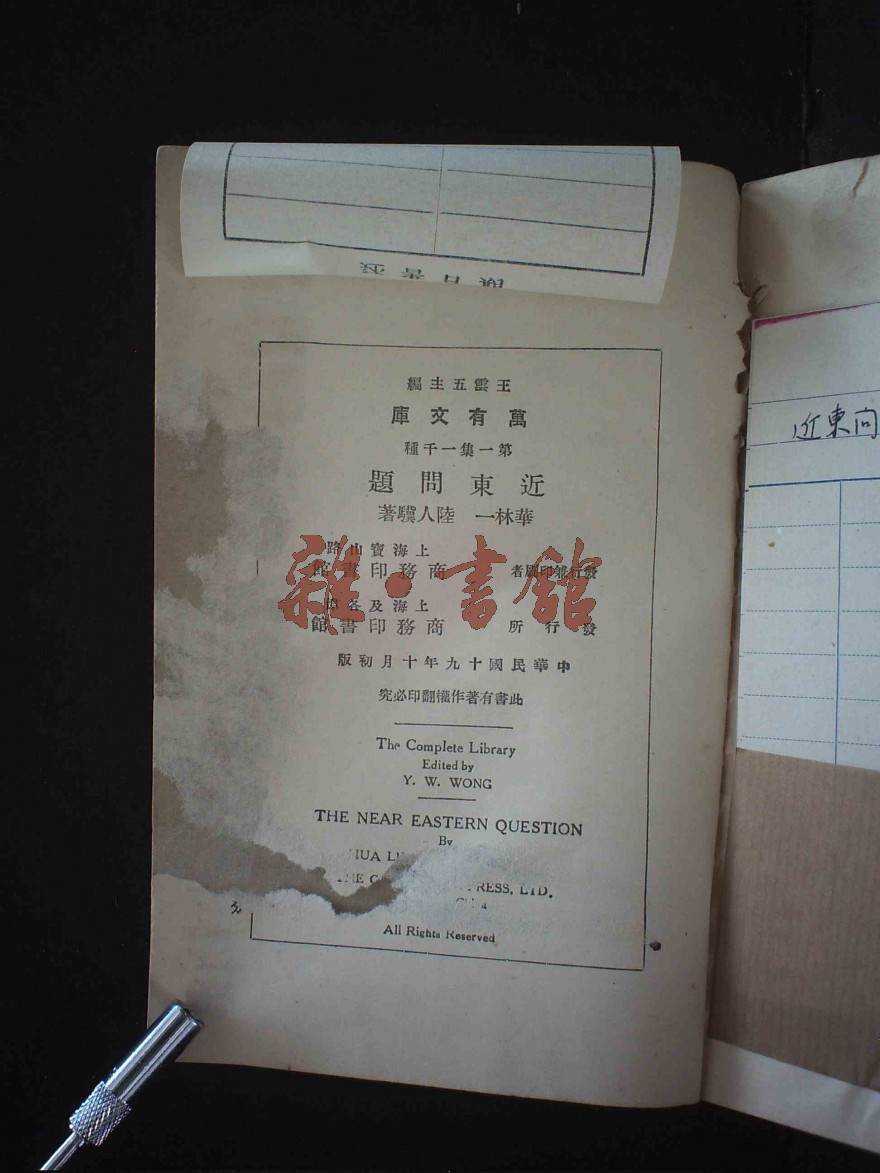 王雲五主編
萬有文庫
第一集一千種
近東問題
華林一 陸人驥著
上海寶山路
發行兼印刷者 商務印書館
上海及各埠
發行所 商務印書館
中華民國十九年十月初版
此書有著作權翻印必究
The Complete Library
Edited by
Y. W. WONG
THE NEAR EASTERN QUESTION
By
HUA
PRESS, LTD.
All Rights Reserved
近東问
雜·書館